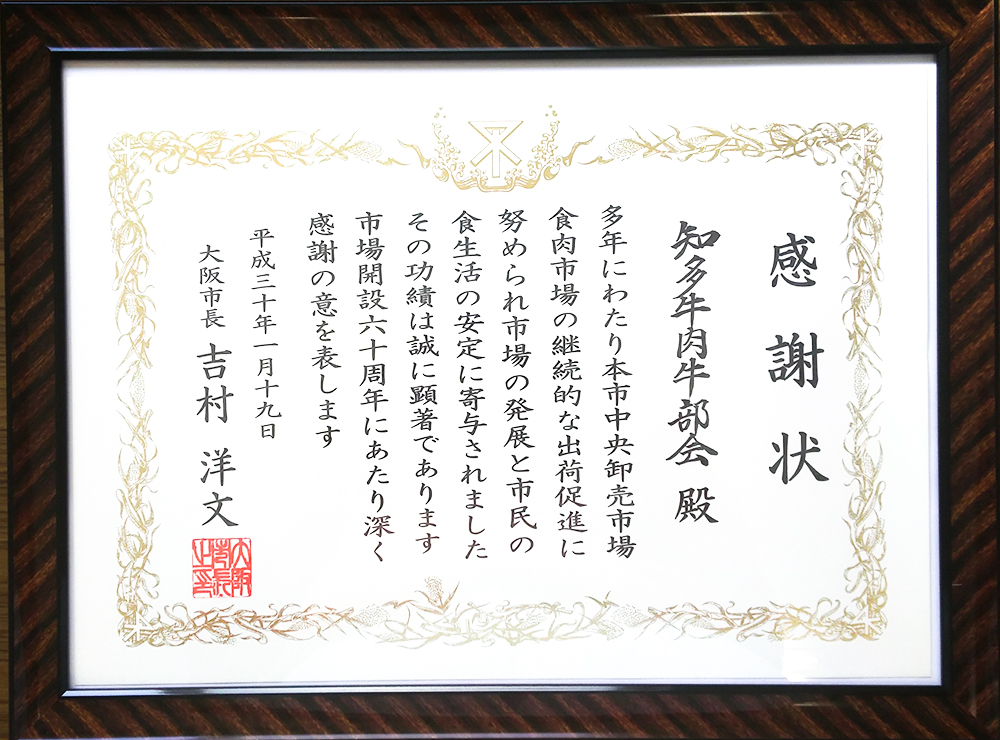 感謝状
知多牛肉牛部会 殿
多年にわたり本市中央卸売市場
食肉市場の継続的な出荷促進に
努められ市場の発展と市民の
食生活の安定に寄与されました
その功績は誠に顕著であります
市場開設六十周年にあたり深く
感謝の意を表します
平成三十年一月十九日
大阪市長 吉村 洋文
大阪市長之印